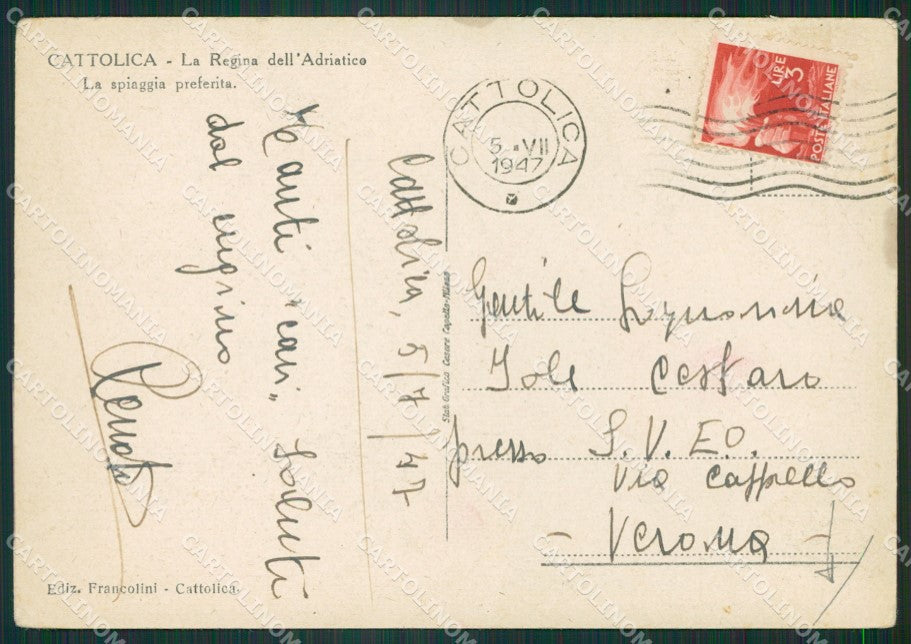 CATTOLICA - La Regina dell'Adriatico
La spiaggia preferita.
CATTOLICA
5 · VII
1947
LIRE 3
POSTE ITALIANE
Cattolica, 5/7/47
"cari" saluti
dal
Renato
Gentile Signorina
Iole Cestaro
presso S.V.E.O.
Via Cappello
- Verona -
Stab. Grafico Cesare Capello - Milano
Ediz. Francolini - Cattolica
CARTOLINOMANIA